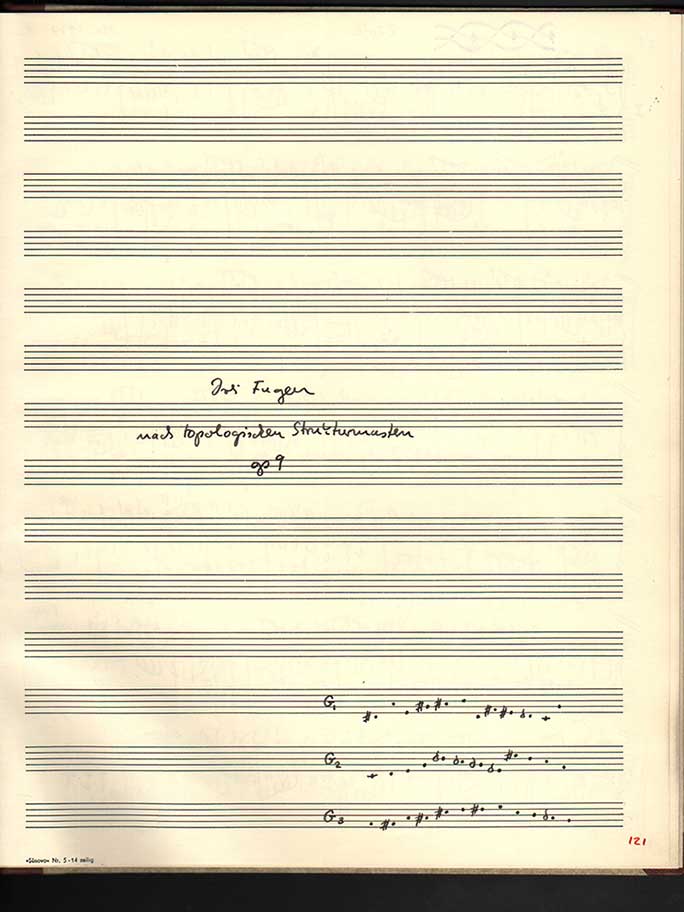 Drei Fugen
nach topologischen Strukturmustern
op 9
G1
G2
G3
121
«Sünova» Nr. 5 - 14 zeilig